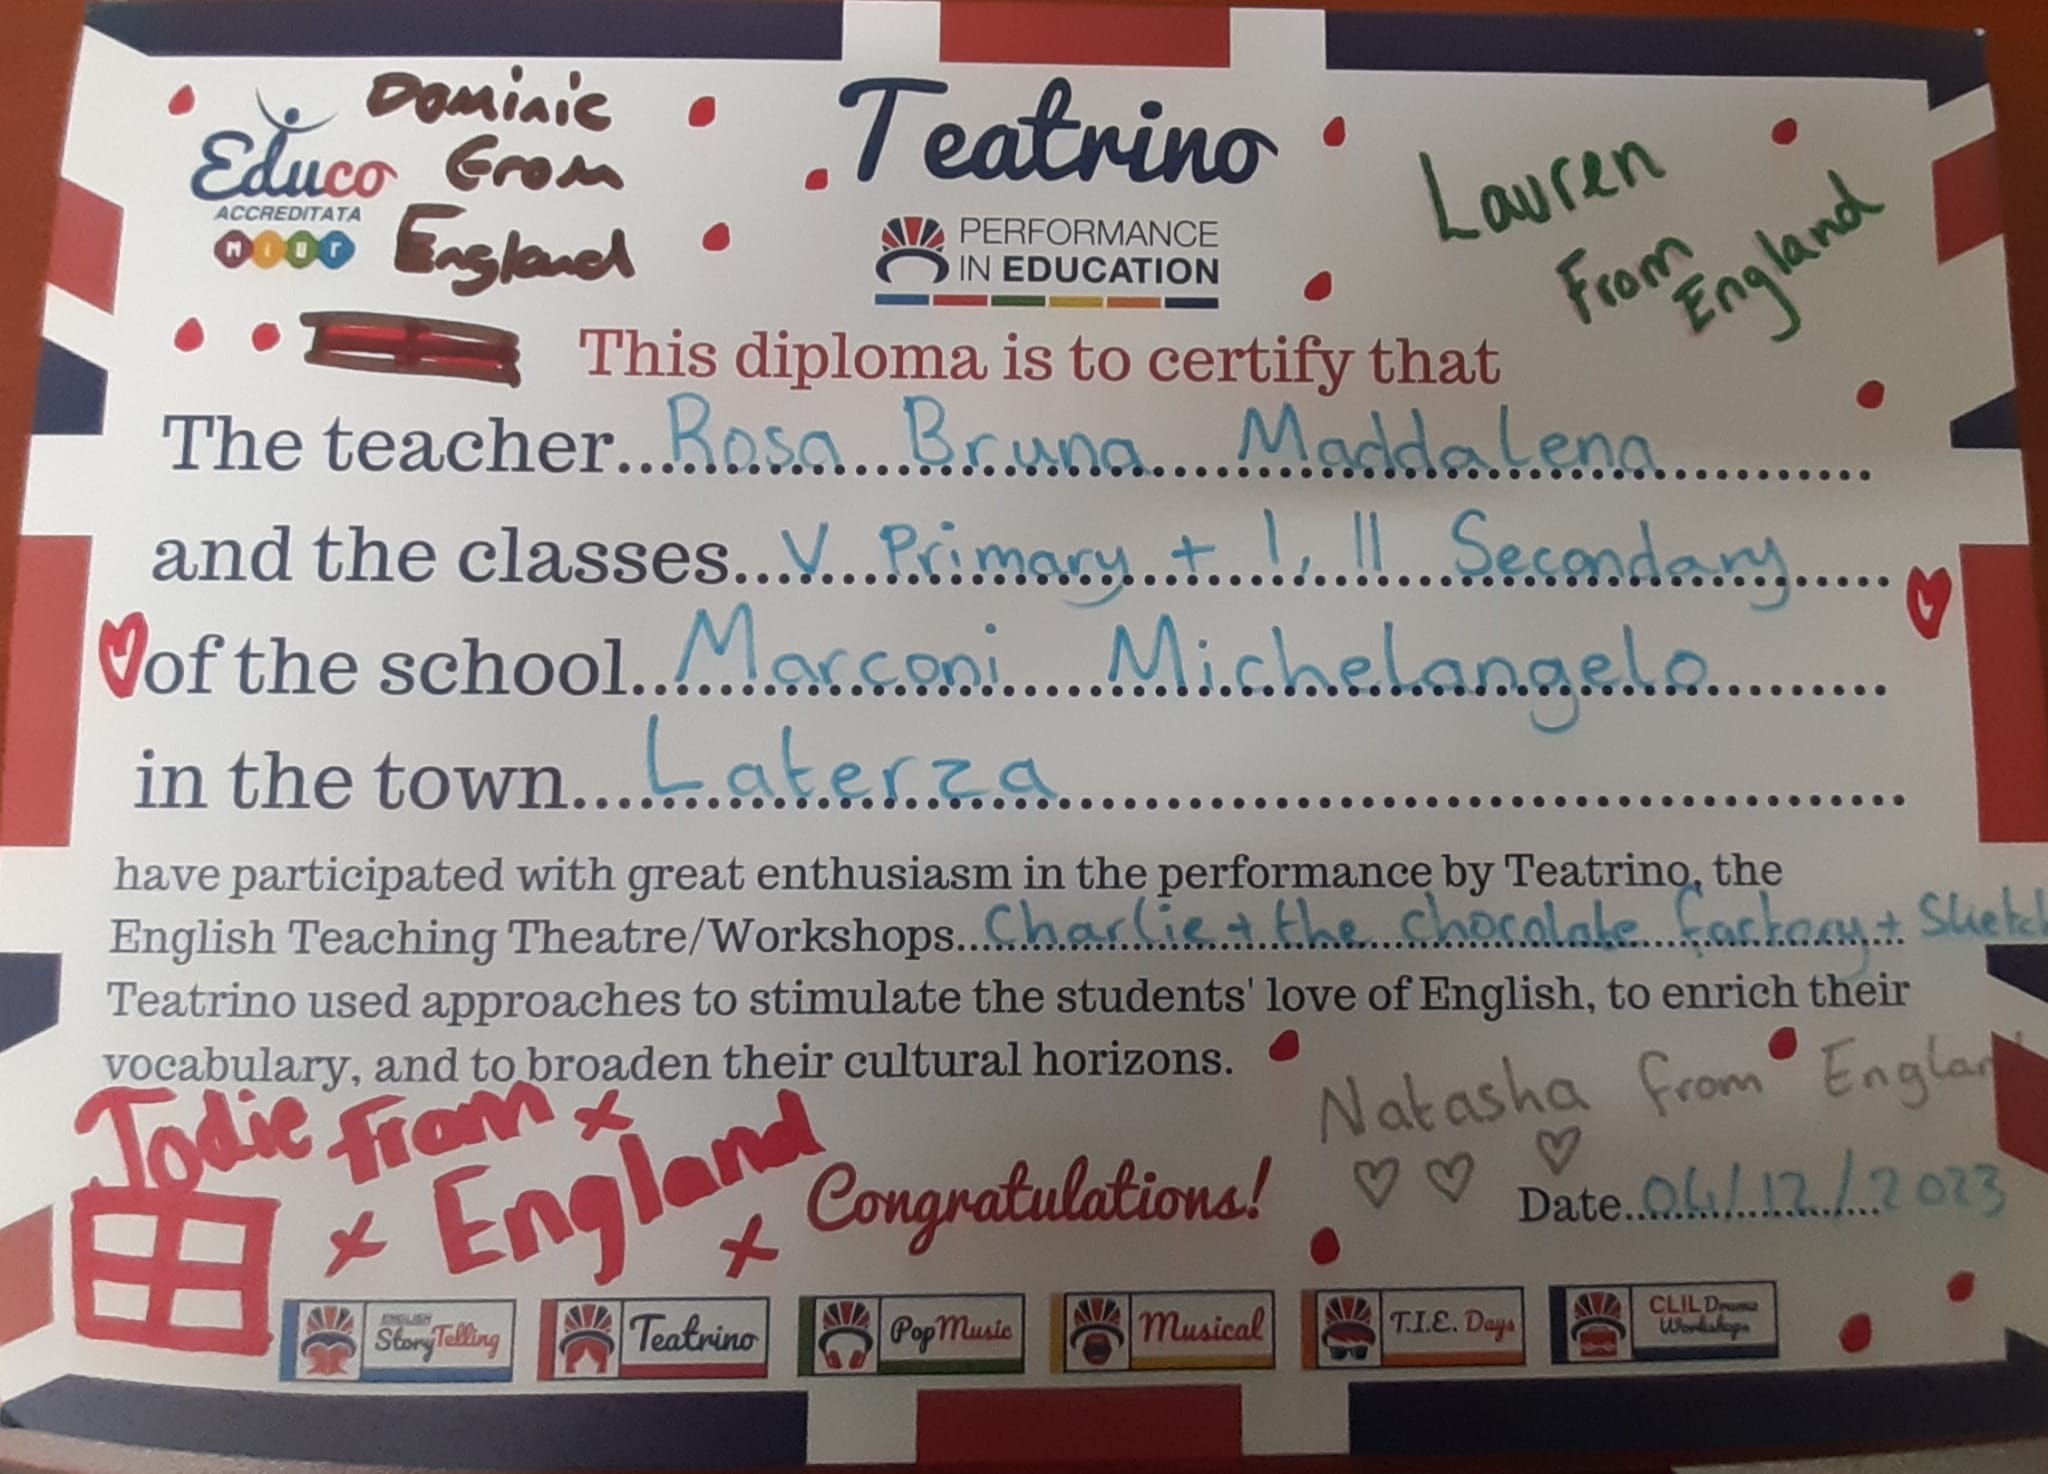 Dominic
From
England
Educo
ACCREDITATA
miur
Teatrino
PERFORMANCE
IN EDUCATION
Lauren
From
England
This diploma is to certify that
The teacher Rosa Bruna Maddalena
and the classes V Primary + I, II Secondary
of the school Marconi Michelangelo
in the town Laterza
have participated with great enthusiasm in the performance by Teatrino, the
English Teaching Theatre/Workshops Charlie + the chocolate factory + Sketch
Teatrino used approaches to stimulate the students' love of English, to enrich their
vocabulary, and to broaden their cultural horizons.
Jodie from
England
Natasha from England
Congratulations!
Date 04/12/2023
ENGLISH
StoryTelling
Teatrino
PopMusic
Musical
T.I.E. Days
CLIL Drama
Workshops